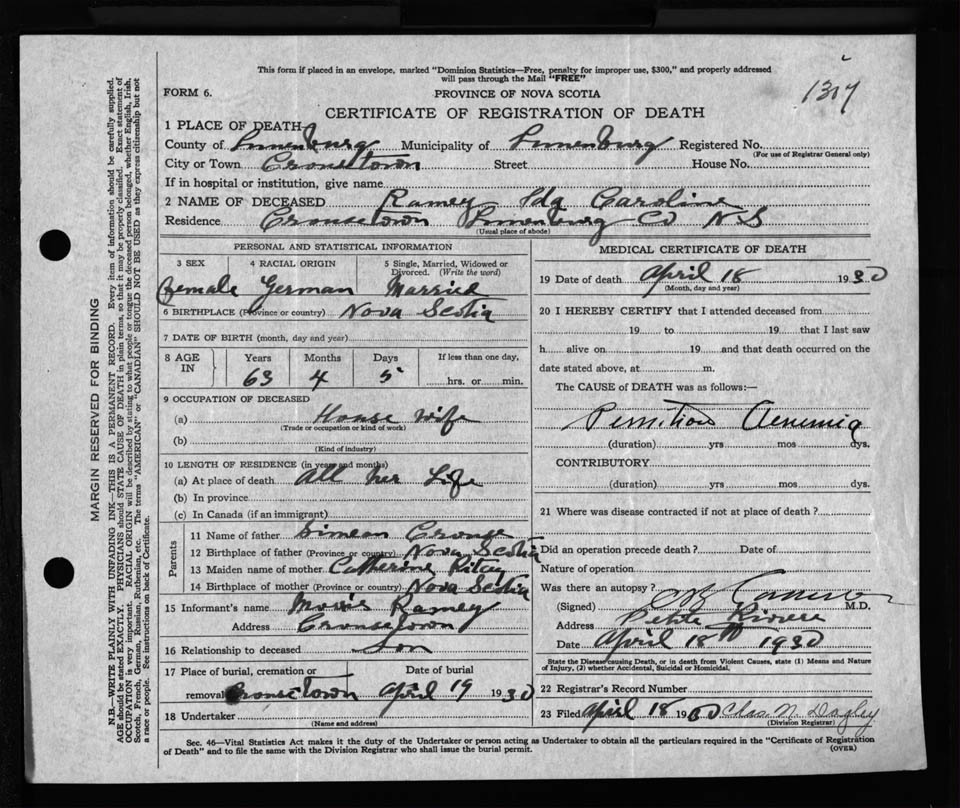 This form if placed in an envelope, marked "Dominion Statistics—Free, penalty for improper use, $300," and properly addressed
will pass through the Mail "FREE"
FORM 6.
PROVINCE OF NOVA SCOTIA
1307
CERTIFICATE OF REGISTRATION OF DEATH
1 PLACE OF DEATH
County of Lunenburg Municipality of Lunenburg Registered No.
(For use of Registrar General only)
City or Town Crousetown Street House No.
If in hospital or institution, give name
2 NAME OF DECEASED Ramey Ida Caroline
Residence Crousetown Lunenburg Co N.S
(Usual place of abode)
PERSONAL AND STATISTICAL INFORMATION
3 SEX 4 RACIAL ORIGIN 5 Single, Married, Widowed or
Divorced. (Write the word)
Female German Married
6 BIRTHPLACE (Province or country) Nova Scotia
7 DATE OF BIRTH (month, day and year)
8 AGE IN Years Months Days If less than one day,
63 4 5 hrs. or min.
9 OCCUPATION OF DECEASED
(a) House Wife
(Trade or occupation or kind of work)
(b)
(Kind of industry)
10 LENGTH OF RESIDENCE (in years and months)
(a) At place of death All her Life
(b) In province
(c) In Canada (if an immigrant)
Parents
11 Name of father Simeon Crouse
12 Birthplace of father (Province or country) Nova Scotia
13 Maiden name of mother Catherine
14 Birthplace of mother (Province or country) Nova Scotia
15 Informant's name Ramey
Address Crousetown
16 Relationship to deceased Son
17 Place of burial, cremation or Date of burial
removal Crousetown April 19 1930
18 Undertaker
(Name and address)
MEDICAL CERTIFICATE OF DEATH
19 Date of death April 18 1930
(Month, day and year)
20 I HEREBY CERTIFY that I attended deceased from
19 to 19 that I last saw
h alive on 19 and that death occurred on the
date stated above, at m.
The CAUSE of DEATH was as follows:—
Pernitious Aenemia
(duration) yrs mos dys.
CONTRIBUTORY
(duration) yrs mos dys.
21 Where was disease contracted if not at place of death?
Did an operation precede death? Date of
Nature of operation
Was there an autopsy?
(Signed) M.D.
Address Petite Riviere
Date April 18th 1930
State the Disease causing Death, or in death from Violent Causes, state (1) Means and Nature
of Injury, (2) whether Accidental, Suicidal or Homicidal.
22 Registrar's Record Number
23 Filed April 18 1930 Chas N. Dagley
(Division Registrar)
Sec. 46—Vital Statistics Act makes it the duty of the Undertaker or person acting as Undertaker to obtain all the particulars required in the "Certificate of Registration
of Death" and to file the same with the Division Registrar who shall issue the burial permit.
(OVER)
MARGIN RESERVED FOR BINDING
N.B.—WRITE PLAINLY WITH UNFADING INK—THIS IS A PERMANENT RECORD. Every item of information should be carefully supplied.
AGE should be stated EXACTLY. PHYSICIANS should STATE CAUSE OF DEATH in plain terms, so that it may be properly classified. Exact statement of
OCCUPATION is very important. RACIAL ORIGIN will be described by stating to what people or tongue the deceased person belonged, whether English, Irish,
Scotch, French, German, Russian, Ruthenian, etc. The terms "AMERICAN" or "CANADIAN" SHOULD NOT BE USED as they express citizenship but not
a race or people. See instructions on back of Certificate.